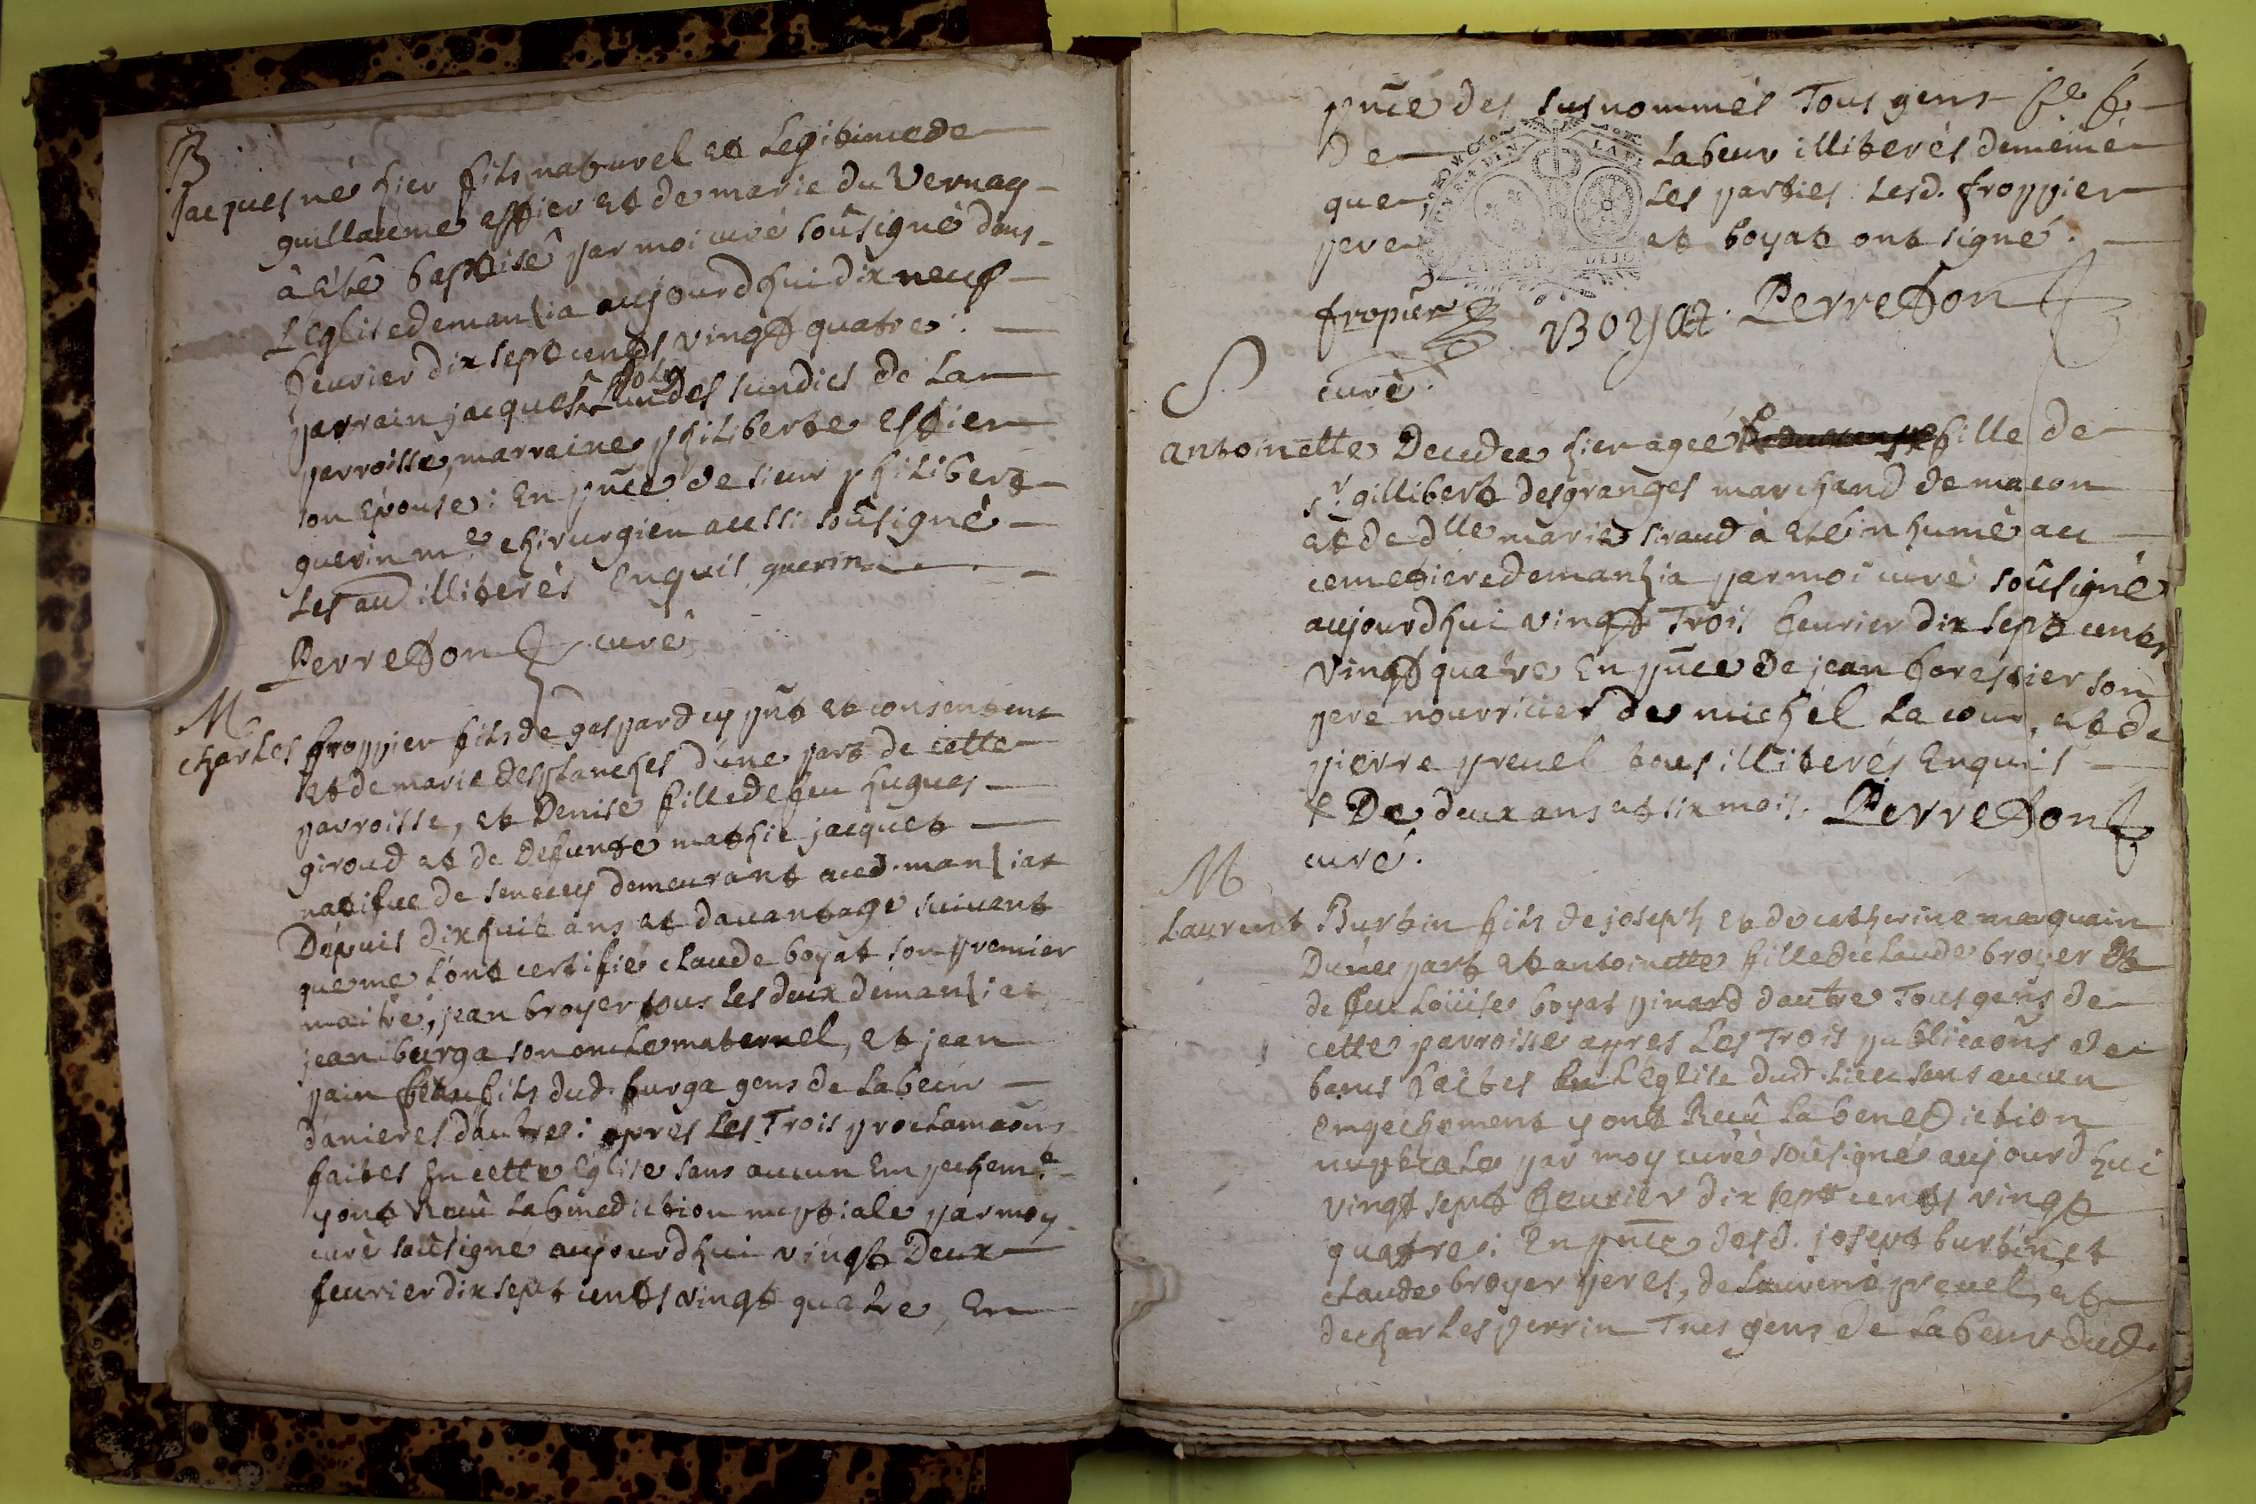 B
jacques né hier fils naturel et Legitimede
guillaûme estier et de marie du Vernay
à êtê baptisê par moi curé soûsigné dans
L'eglisedemanzia aujourdhui dix neuf
feurier dix sept cents vingt quatre :
joly
parrain jacques Lun des sundics de La
parroisse, marraine philiberte estier
son Epouse : En pñce de sieur philibert
guerin me chirurgien aussi soûsigné
Les au illiterés Enquis guerin
Perreton curé
M
charles froppier fils de gaspard cy pñt et consentent
et de marie desplanches d'une part de cette
parroisse, et Denise fille de feu hugues
giroud et de defunte mathie jacquet
natifue de senecey demeurant aud. manziat
Depuis dixhuit ans et dauantage suiuant
que me l'ont certifié claude boyat son premier
maitre, jean broyer tous les deux demanziat
jean burga son oncle maternel, et jean
pain fils dud. burga gens de Labeur
danieres dautre : apres Les Trois proclamaoñs
faites En cette Eglise sans aucun Empechemt
y ont Receû La benediction nuptiale par moy
curé soûsigné aujourdhui vingt Deux
feurier dix sept cents vingt quatre, En
pñce des susnommés Tous gens
De Labeur illiterés demême
que Les parties Lesd. froppier
pere et boyat ont signé.
fropier BOyat. Perreton
curé.
S
antoinette Decedee hier agée fille de
Sr. gillibert desgranges marchand de macon
et de dlle marie siraud à eté inhumé au
cemetiere demanzia par moi curé soûsigné
aujourdhui vingt Trois feurier dix sept cents
vingt quatre En pñce de jean forestier son
pere nourricier de michel La cour, et de
pierre preuel tous illiterés Enquis
De deux ans et six mois. Perreton
curé.
M
Laurent Burtin fils de joseph et de catherine marguain
Dune part et antoinette fille de claude broyer et
de feu Loüise boyat pinard dautre Tous gens de
cette parroisse apres Les Trois publicaoñs de
bans faites En L'Eglise dud. lieu sans aucun
empechement y ont Receû la benediction
nuptiale par moy curé soûsigné aujourdhui
vingt sept feurier dix sept cents vingt
quatre : En pñce desd. josept burtin et
claude broyer peres, de Laurent preuel, et
de charles perrin Tous gens de Labeur dud.